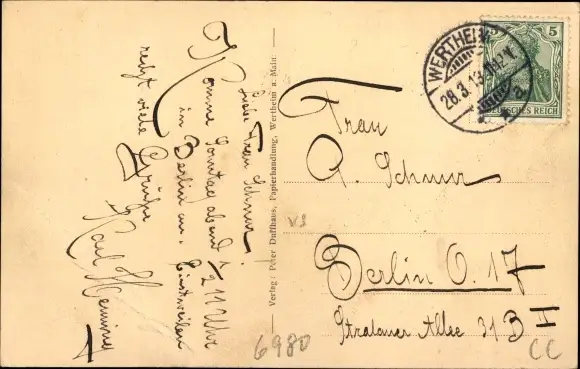 Liebe Frau Schnur!
Komme Sonntag abend 1/2 11 Uhr
in Berlin an. Einstweilen
recht viele Grüße
Karl Henning
Verlag: Peter Duffhaus, Papierhandlung, Wertheim a. Main.
WERTHEIM
28.3.13
a
5
DEUTSCHES REICH
Frau
A. Schnur
VS
Berlin O. 17
Stralauer Allee 31 B II
6980
CC